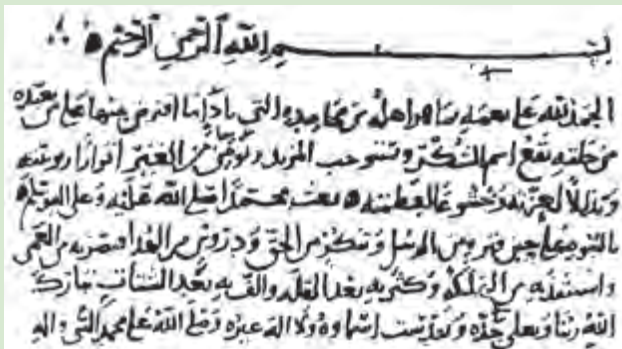 بسم الله الرحمن الرحيم
الحمد لله على نعمه بما هو اهله من محامده التي بادائها افترض منها على من تعبده
من خلقه يقع اسم الشكر ويستوجب المزيد
وتذللا لعزته وخشوعا لعظمته بعث محمدا صلى الله عليه وعلى اله وسلم
بالنبوة على حين فترة من الرسل من الحق ودروس من الهدى فبصر به من العمى
واستنقذ به من الهلكة وكثر به بعد القلة والف به بعد الشتات تبارك
الله ربنا وتعلى جده وتقدست اسماوه ولا اله غيره وصلى الله على محمد النبي واله